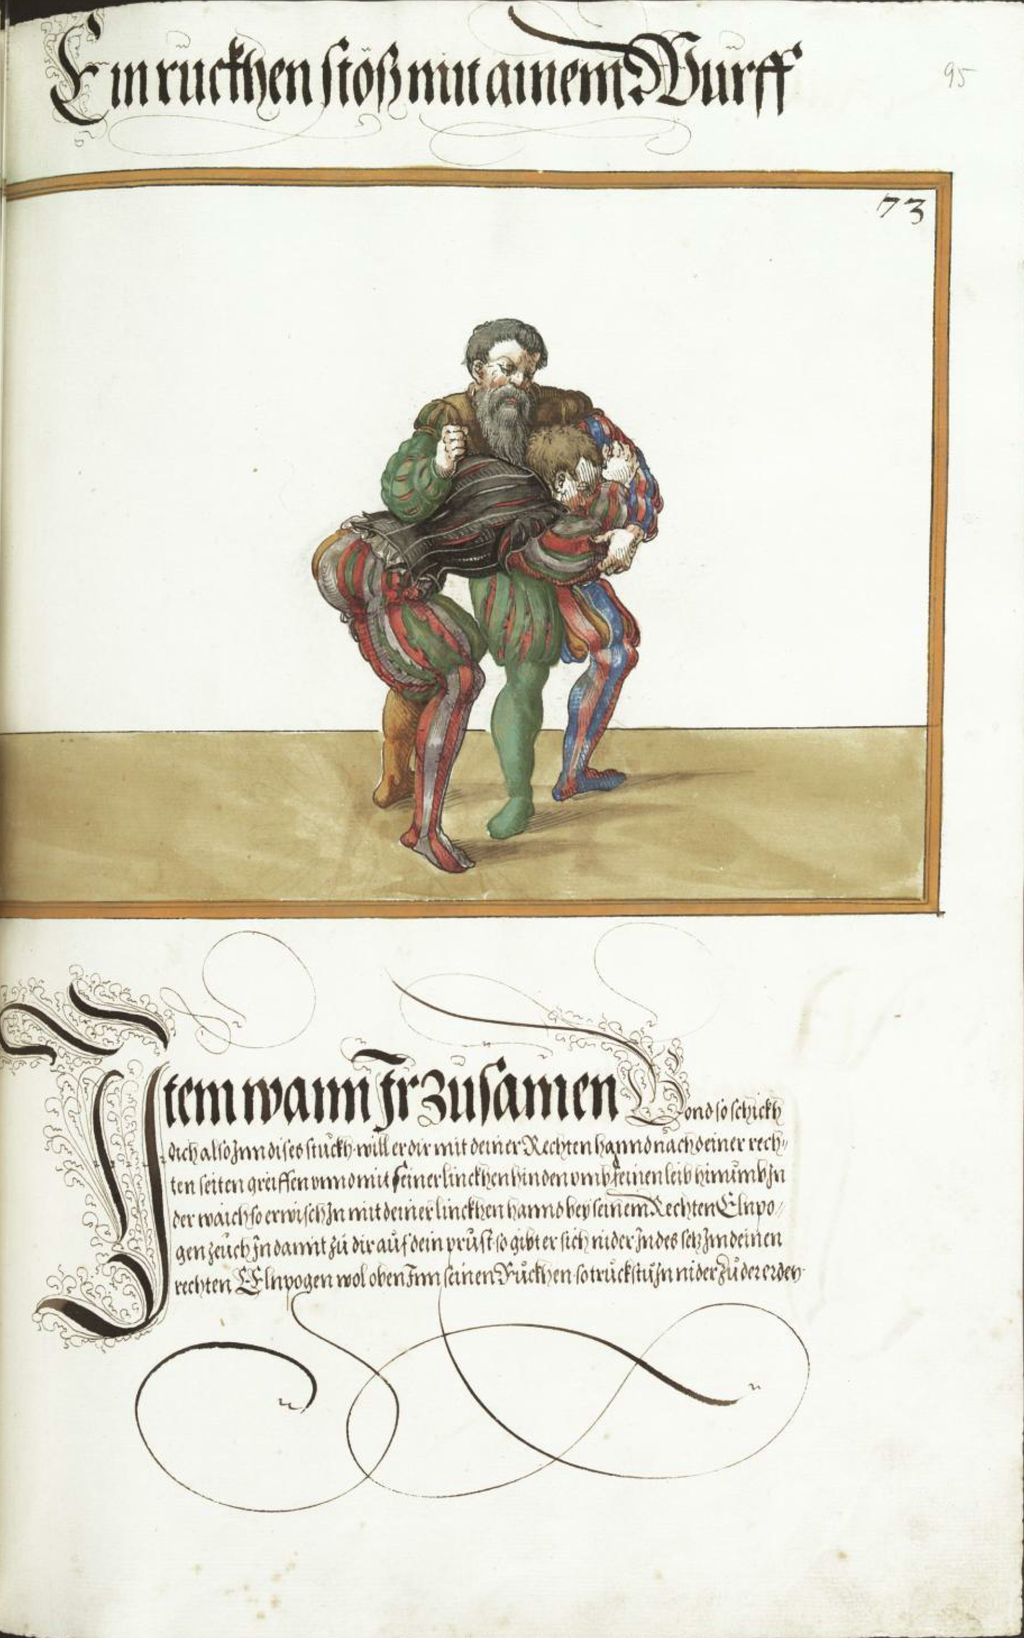 Ein rückhen stöß mit ainem Wurff
95
73
Item wann Ir zusamen Gond so schickh
dich also Inn dises stuckh will er dir mit deiner Rechten hannd nach deiner rech-
ten seiten greiffen vnnd mit seiner linckhen hinden vmb seinen leib hinumb In
der waich so erwisch In mit deiner linckhen hannd bey seinem Rechten Elnpo-
gen zeuch In damit zu dir auf dein prust so gibt er sich nider Indes setz Im deinen
rechten Elnpogen wol oben Inn seinen Ruckhen so truckstu In nider zu der erden